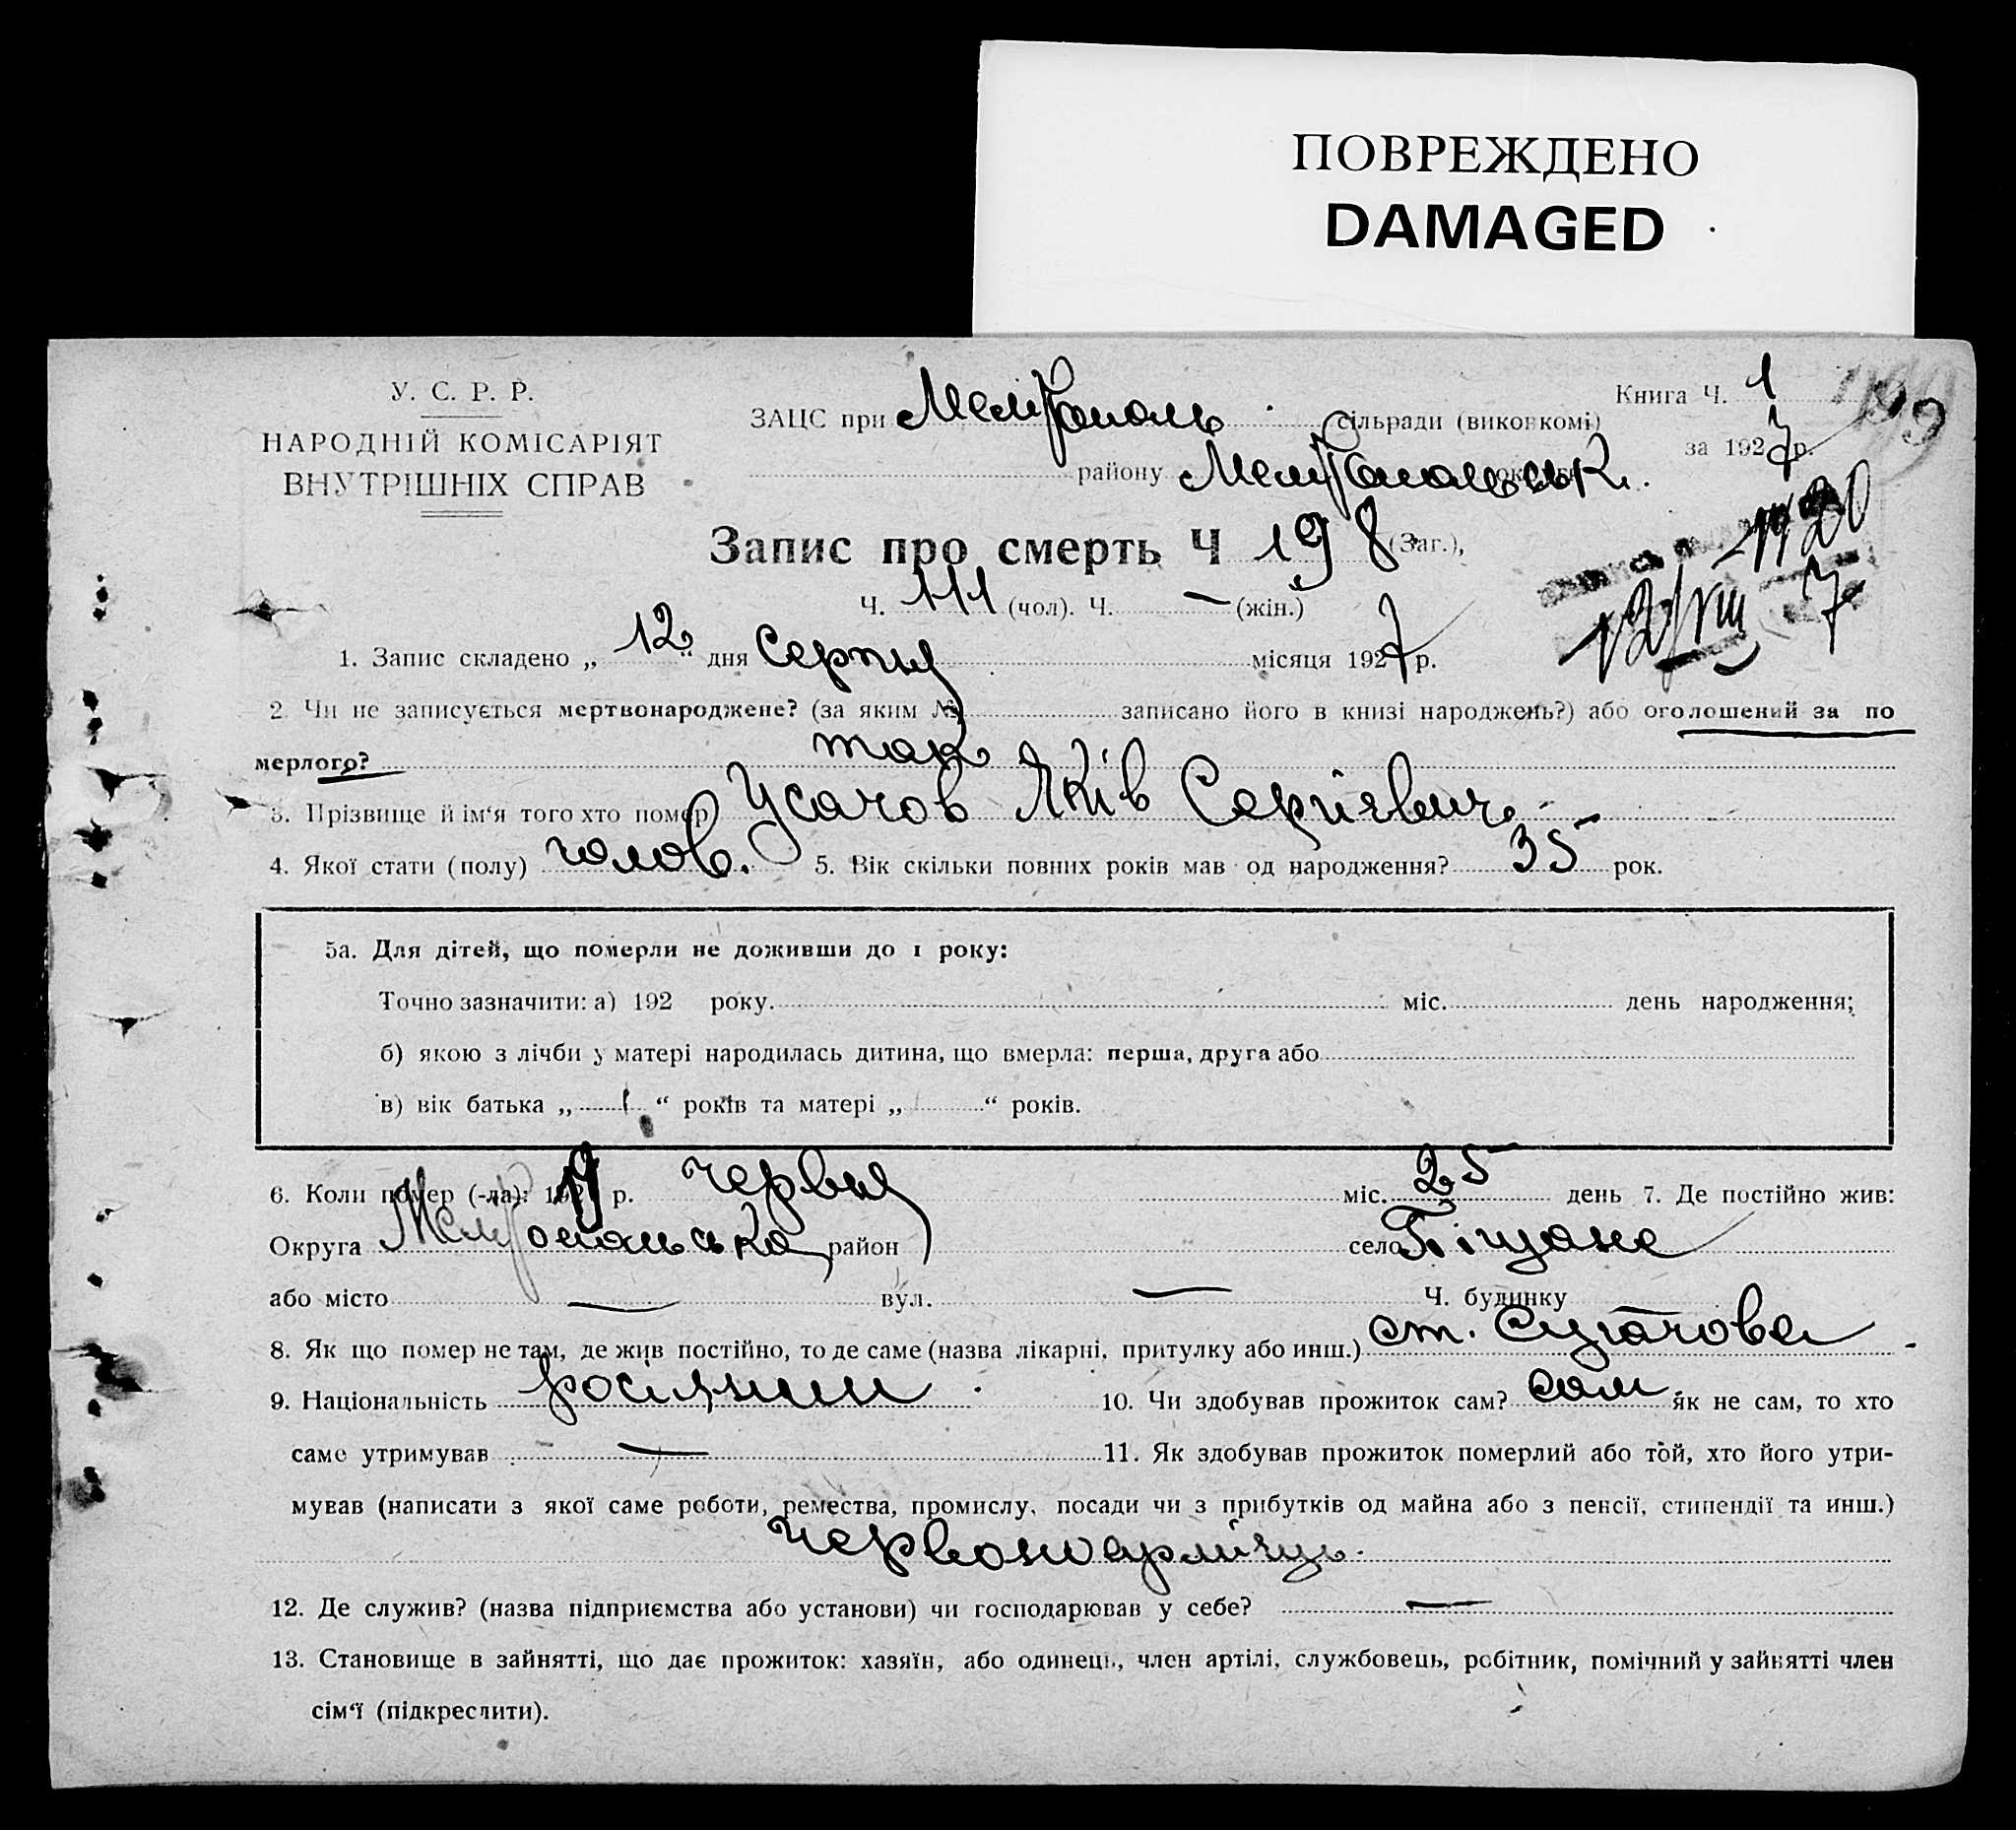 ПОВРЕЖДЕНО
DAMAGED
У. С. Р. Р.
НАРОДНІЙ КОМІСАРІЯТ
ВНУТРІШНІХ СПРАВ
ЗАЦС при Мелітополь сільради (виконкомі)
району Мелітопольськ.
Книга Ч. 1
за 1927 р.
Запис про смерть Ч 198 (Заг.),
Ч. 111 (чол). Ч. — (жін.)
12/VIII 7
1. Запис складено „ 12 “ дня Серпня місяця 1927 р.
2. Чи не записується мертвонароджене? (за яким № записано його в книзі народжень?) або оголошений за по
мерлого? так
3. Прізвище й ім‘я того хто помер Усачов Яків Сергієвич
4. Якої стати (полу) чолов. 5. Вік скільки повних років мав од народження? 35 рок.
5а. Для дітей, що померли не доживши до 1 року:
Точно зазначити: а) 192 року. міс. день народження;
б) якою з лічби у матері народилась дитина, що вмерла: перша, друга або
в) вік батька „ “ років та матері „ “ років.
6. Коли помер (-ла): 19 р. червня міс. 25 день 7. Де постійно жив:
Округа Мелітопольська район село Піщане
або місто — вул. — Ч. будинку —
8. Як що помер не там, де жив постійно, то де саме (назва лікарні, притулку або инш.) ст.
9. Національність росіянин 10. Чи здобував прожиток сам? сам як не сам, то хто
саме утримував — 11. Як здобував прожиток померлий або той, хто його утри-
мував (написати з якої саме роботи, ремества, промислу, посади чи з прибутків од майна або з пенсії, стипендії та инш.)
червоноармієць.
12. Де служив? (назва підприємства або установи) чи господарював у себе? —
13. Становище в зайнятті, що дає прожиток: хазяїн, або одинець, член артілі, службовець, робітник, помічний у зайнятті член
сім‘ї (підкреслити).